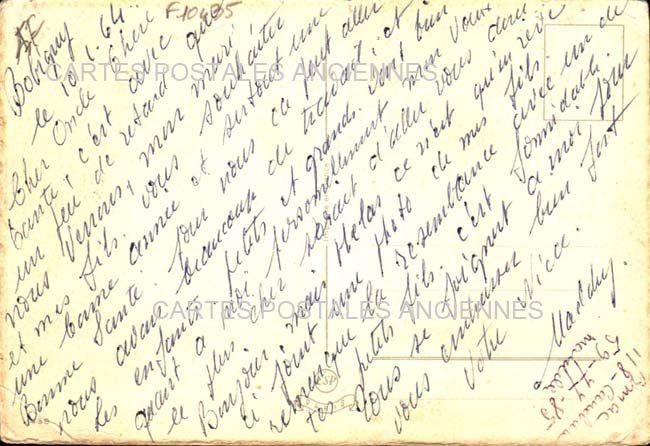 F10485
Bobigny
le 10.1.64
Cher Oncle Chère
Tante, c'est avec
un peu de retard que
nous venons, mon mari
et mes fils, vous souhaiter
une bonne année et surtout une
bonne Santé. Pour nous ça peut aller
nous avons beaucoup de travail, et
les enfants petits et grands vont bien
quant à moi personnellement mon voeux
le plus cher serait d'aller vous dire
Bonjour, mais Hélas ce n'est qu'un rêve
ci joint une photo de mes fils.
remarque la ressemblance avec un de
tes petits fils, c'est formidable.
Tous se joignent à moi pour
vous embrasser bien fort
Votre Nièce.
Maddy.
CARTES POSTALES ANCIENNES
CARTES POSTALES ANCIENNES